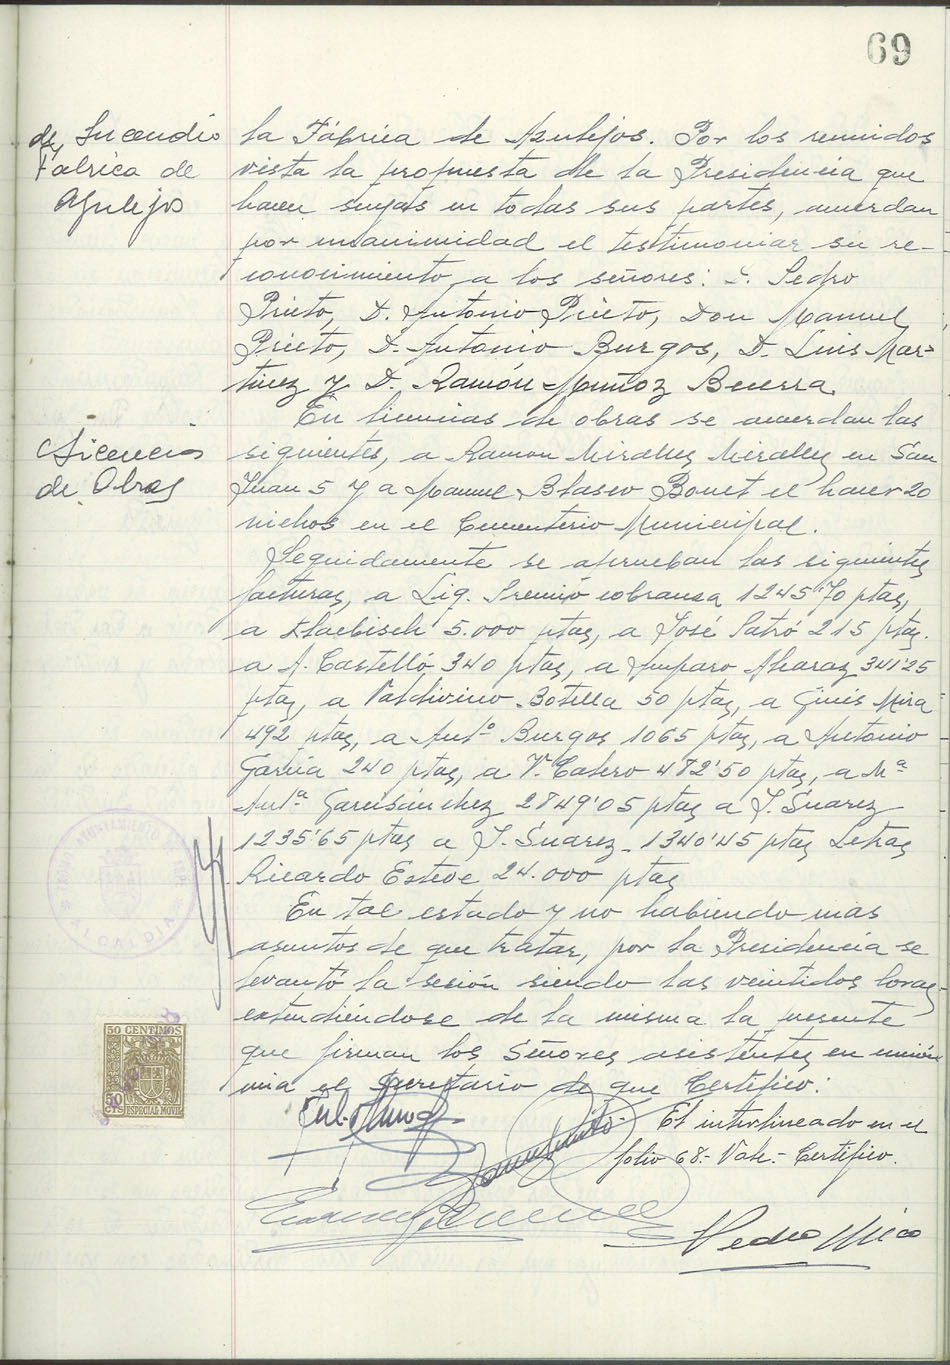 69
de Incendio
Fabrica de
Azulejos
la Fábrica de Azulejos. Por los reunidos
vista la propuesta de la Presidencia que
hacen suyas en todas sus partes, acuerdan
por unanimidad el testimoniar su re-
conocimiento a los señores: D. Pedro
Prieto, D. Antonio Prieto, Don Manuel
Prieto, D. Antonio Burgos, D. Luis Mar-
tinez y D. Ramón Muñoz Becerra.
Licencias
de Obras
En licencias de obras se acuerdan las
siguientes, a Ramon Miralles Miralles en San
Juan 5 y a Manuel Blasco Bonet el hacer 20
nichos en el Cementerio Municipal.
Seguidamente se aprueban las siguientes
facturas, a Liq. Premio cobranza 1245'70 ptas,
a 5.000 ptas, a José Satró 215 ptas.
a A. Castelló 340 ptas, a Amparo Alcaraz 341'25
ptas, a Valdivino Botella 50 ptas, a Ginés Mira
492 ptas, a Antº Burgos 1065 ptas, a Antonio
García 240 ptas, a V. Calero 482'50 ptas, a Mª
Antª Garcisánchez 2849'05 ptas a J. Suarez
1235'65 ptas a J. Suarez 1340'45 ptas Letras
Ricardo Esteve 24.000 ptas
En tal estado y no habiendo mas
asuntos de que tratar, por la Presidencia se
levantó la sesión siendo las veintidos horas
extendiéndose de la misma la presente
que firman los Señores asistentes en
el Secretario de que Certifico:
El interlineado en el
folio 68.- Vale.- Certifico.
Pedro Mico
AYUNTAMIENTO
ALCALDIA
50 CENTIMOS
50
CTS ESPECIAL MOVIL